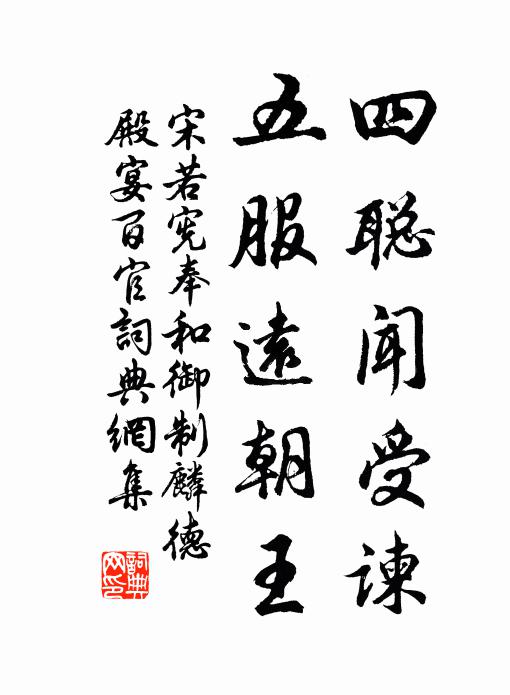 四聪闻受谏
五服遠朝王
宋若宪奉和御制麟德
殿宴百官詞典網集
詞典
网印